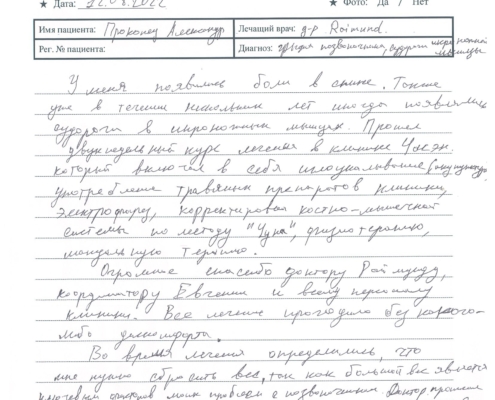 ★ Дата: 22.08.2022 ★ Фото: Да / Нет
Имя пациента: Прокопец Александр Лечащий врач: д-р. Raimund.
Рег. № пациента: Диагноз: грыжа позвоночника, судороги икроножной мышцы
У меня появились боли в спине. Также
уже в течении нескольких лет иногда появлялись
судороги в икроножных мышцах. Прошел
двухнедельный курс лечения в клинике Часэн.
который включал в себя иглоукалывание (акупунктура)
употребление травяных препаратов клиники,
электрофорез, корректировка костно-мышечной
системы по методу "Чуна", физиотерапию,
мануальную терапию.
Огромное спасибо доктору Раймунду,
координатору Евгении и всему персоналу
клиники. Все лечение проходило без какого-
либо дискомфорта.
Во время лечения определились, что
мне нужно сбросить вес, так как большой вес является
ключевым моих проблем с позвоночником Доктор